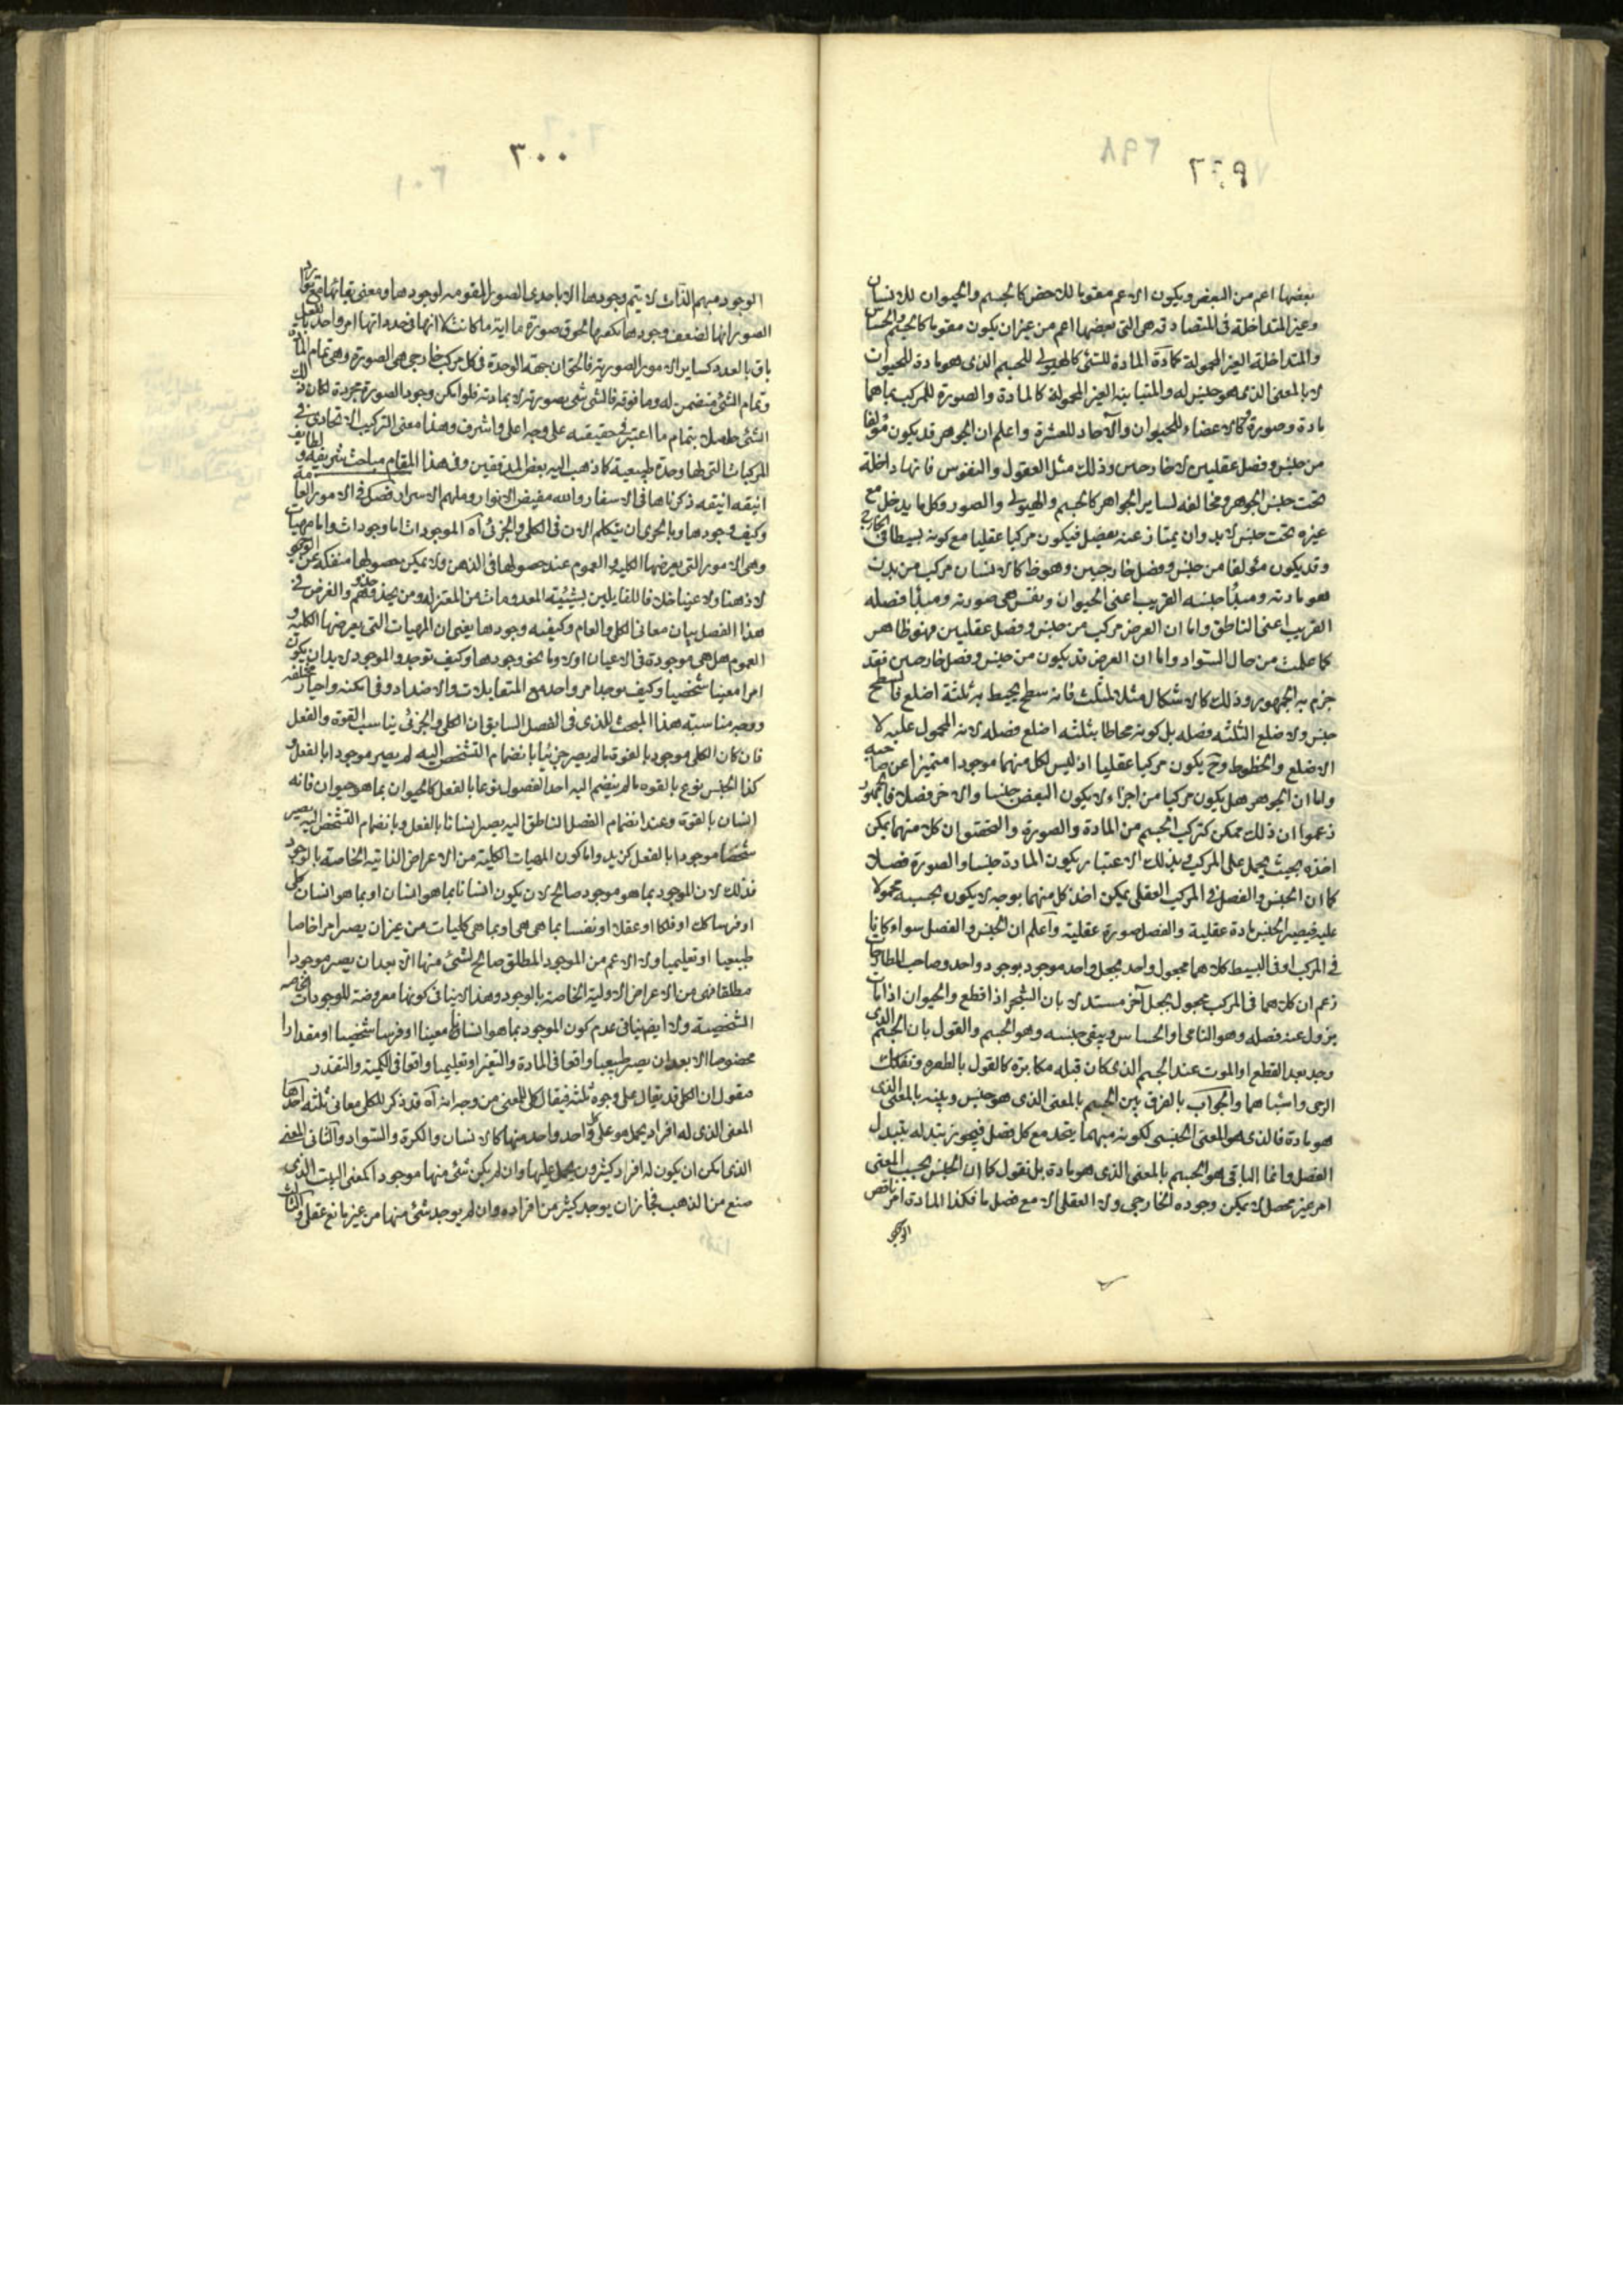 ٢٩٩
بعضها اعم من البعض ويكون الاعم مقوما للاخص كالجسم والحيوان للانسان
وغير المتداخلة فى المتصادقة هى التى بعضها اعم من غير ان يكون مقوما كالجسم والحساس
والمتداخلة الغير المحمولة كمادة المادة للشئ كالهيولى للجسم الذى هو مادة للحيوان
لا بالمعنى الذى هو جنس له والمتباينة الغير المحمولة كالمادة والصورة للمركب بما هما
مادة وصورة وكالاعضاء للحيوان والآحاد للعشرة واعلم ان الجوهر قد يكون مؤلفا
من جنس وفصل عقليين لا خارجين وذلك مثل العقول والنفوس فانها داخلة
تحت جنس الجوهر ومخالفه لساير الجواهر كالجسم والهيولى والصور وكل ما يدخل مع
غيره تحت جنس لابد وان يمتاز عنه بفصل فيكون مركبا عقليا مع كونه بسيطا فى الخارج
وقد يكون مؤلفا من جنس وفصل خارجيين وهو ظ كالانسان مركب من بدن
هو مادته ومبدأ جنسه القريب اعنى الحيوان ونفس هى صورته ومبدأ فصله
القريب اعنى الناطق واما ان العرض مركب من جنس وفصل عقليين فهو ظاهر
كما علمت من حال السواد واما ان العرض قد يكون من جنس وفصل خارجين فقد
جزم به الجمهور وذلك كالاشكال مثلا المثلث فانه سطح يحيط به ثلثة اضلع فالسطح
جنس والاضلع الثلثه فصله بل كونه محاطا بثلثه اضلع فصله لانه المحمول عليه لا
الاضلع والخطوط وح يكون مركبا عقليا اذ ليس لكل منهما موجودا متميزا عن صاحبه
واما ان الجوهر هل يكون مركبا من اجزاء لا يكون البعض جنسا والاخر فصلا فالجمهور
زعموا ان ذلك ممكن كتركب الجسم من المادة والصورة والتحقيق ان كلا منهما يمكن
اخذه بحيث يحمل على المركب فبذلك الاعتبار يكون المادة جنسا والصورة فصلا
كما ان الجنس والفصل فى المركب العقلى يمكن اخذ كل منهما بوجه لا يكون بحسبه محمولا
عليه فيصير الجنس مادة عقلية والفصل صورة عقلية واعلم ان الجنس والفصل سواء كانا
فى المركب او فى البسيط كلاهما مجعول واحد بجعل واحد موجود بوجود واحد وصاحب المطارحات
زعم ان كلاهما فى المركب مجعول بجعل آخر مستدلا بان الشجر اذا قطع والحيوان اذا مات
يزول عنه فصله وهو النامى او الحساس ويبقى جنسه وهو الجسم والقول بان الجسم الذى
وجد بعد القطع او الموت عند الجسم الذى كان قبله مكابرة كالقول بالطفره وتفكك
الرحى واشباهما والجواب بالفرق بين الجسم بالمعنى الذى هو جنس وبينه بالمعنى الذى
هو مادة فالذى هو المعنى الجنسى لكونه مبهما يتحد مع كل فصل فيجوز تبدله بتبدل
الفصل وانما الباقى هو الجسم بالمعنى الذى هو مادة بل نقول كما ان الجنس بحسب المعنى
امر غير محصل لا يمكن وجوده الخارجى ولا العقلى الا مع فصل ما فكذا المادة امر ناقص
الوجود
٣٠٠
الوجود مبهم الذات لا يتم وجودها الا باحدى الصور المقومه لوجودها ومعنى بقائها مع توارد
الصور انها لضعف وجودها يكفيها لحوق صورة ما اية ما كانت لا انها فى حد ذاتها امر واحد بالفعل
باق بالعدد كساير الامور الصورية فالحق ان جهة الوحدة فى كل مركب خارجى هى الصورة وهى تمام المادة
وتمام الشئ متضمن له وما فوقه فالشئ شئ بصورته لا بمادته فلو امكن وجود الصورة مجردة لكان ذلك
الشئ حاصلا بتمام ما اعتبر فى حقيقته على وجه اعلى واشرف وهذا معنى التركيب الاتحادى فى
المركبات التى لها وحدة طبيعية كما ذهب اليه بعض المدققين وفى هذا المقام مباحث شريفه ولطايف
انيقه ذكرناها فى الاسفار والله مفيض الانوار وملهم الاسرار فصل فى الامور العامة
وكيف وجودها وبالحرى ان يتكلم الان فى الكلى والجزئى آه الموجودات اما وجودات واما مهيات
وهى الامور التى يعرضها الكليه والعموم عند حصولها فى الذهن ولا يمكن حصولها منفكة عن الوجود
لا ذهنا ولا عينا خلافا للقايلين بشيئية المعدومات من المعتزله ومن يحذو حذوهم والغرض فى
هذا الفصل بيان معانى الكلى والعام وكيفيه وجودها يعنى ان المهيات التى يعرضها الكليه و
العموم هل هى موجودة فى الاعيان اولا وما نحو وجودها وكيف توجد والموجود لابد ان يكون
امرا معينا شخصيا وكيف يوجد امر واحد مع المتقابلات والاضداد وفى امكنه واحياز مختلفه
ووجه مناسبته هذا المبحث للذى فى الفصل السابق ان الكلى والجزئى يناسب القوة والفعل
فان كان الكلى موجود بالقوة ما لم يصر جزئيا بانضمام التشخص اليه لم يصير موجودا بالفعل و
كذا الجنس نوع بالقوه ما لم ينضم اليه احد الفصول نوعا بالفعل كالحيوان بما هو حيوان فانه
انسان بالقوة وعند انضمام الفصل الناطق اليه يصير انسانا بالفعل وبانضمام التشخص اليه يصير
شخصا موجودا بالفعل كزيد واما كون المهيات الكلية من الاعراض الذاتيه الخاصة بالوجود
فذلك لان الموجود بما هو موجود صالح لان يكون انسانا بما هو انسان او بما هو انسان كلى
او فرسا كك او فلكا او عقلا او نفسا بما هى هى او بما هى كليات من غير ان يصير امرا خاصا
طبيعيا او تعليميا ولا الاعم من الموجود المطلق صالح لشئ منها الا بعد ان يصير موجودا
مطلقا فهى من الاعراض الاولية الخاصة بالوجود وهذا لا ينافى كونها معروضة للوجودات الخاصه
الشخصية ولا ايضا ينافى عدم كون الموجود بما هو انسانا معينا او فرسا شخصيا او مقدارا
مخصوصا الا بعد ان يصير طبيعيا واقعا فى المادة والتغير او تعليميا واقعا فى الكمية والتقدر
مقول ان الكلى قد يقال على وجوه ثلثه فيقال كلى للمعنى من وجه انه آه قد ذكر للكلى معانى ثلثه احدها
المعنى الذى له افراد يحمل هو على كل واحد واحد منها كالانسان والكرة والسواد والثانى المعنى
الذى امكن ان يكون له افراد كثيرون يحمل عليها وان لم يكن شئ منها موجودا كمعنى البيت الذى
صنع من الذهب فجاز ان يوجد كثير من افراده وان لم يوجد شئ منها من غير مانع عقلى والثالث